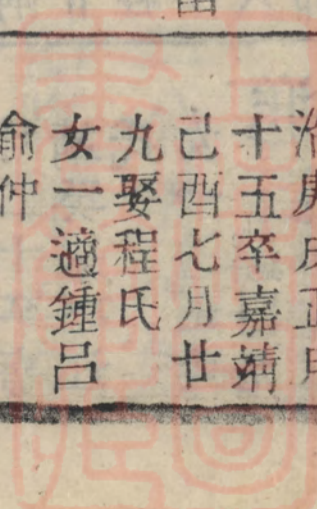 治庚戌正月
十五卒嘉靖
己酉七月廿
九娶程氏
女一適鍾呂
俞仲